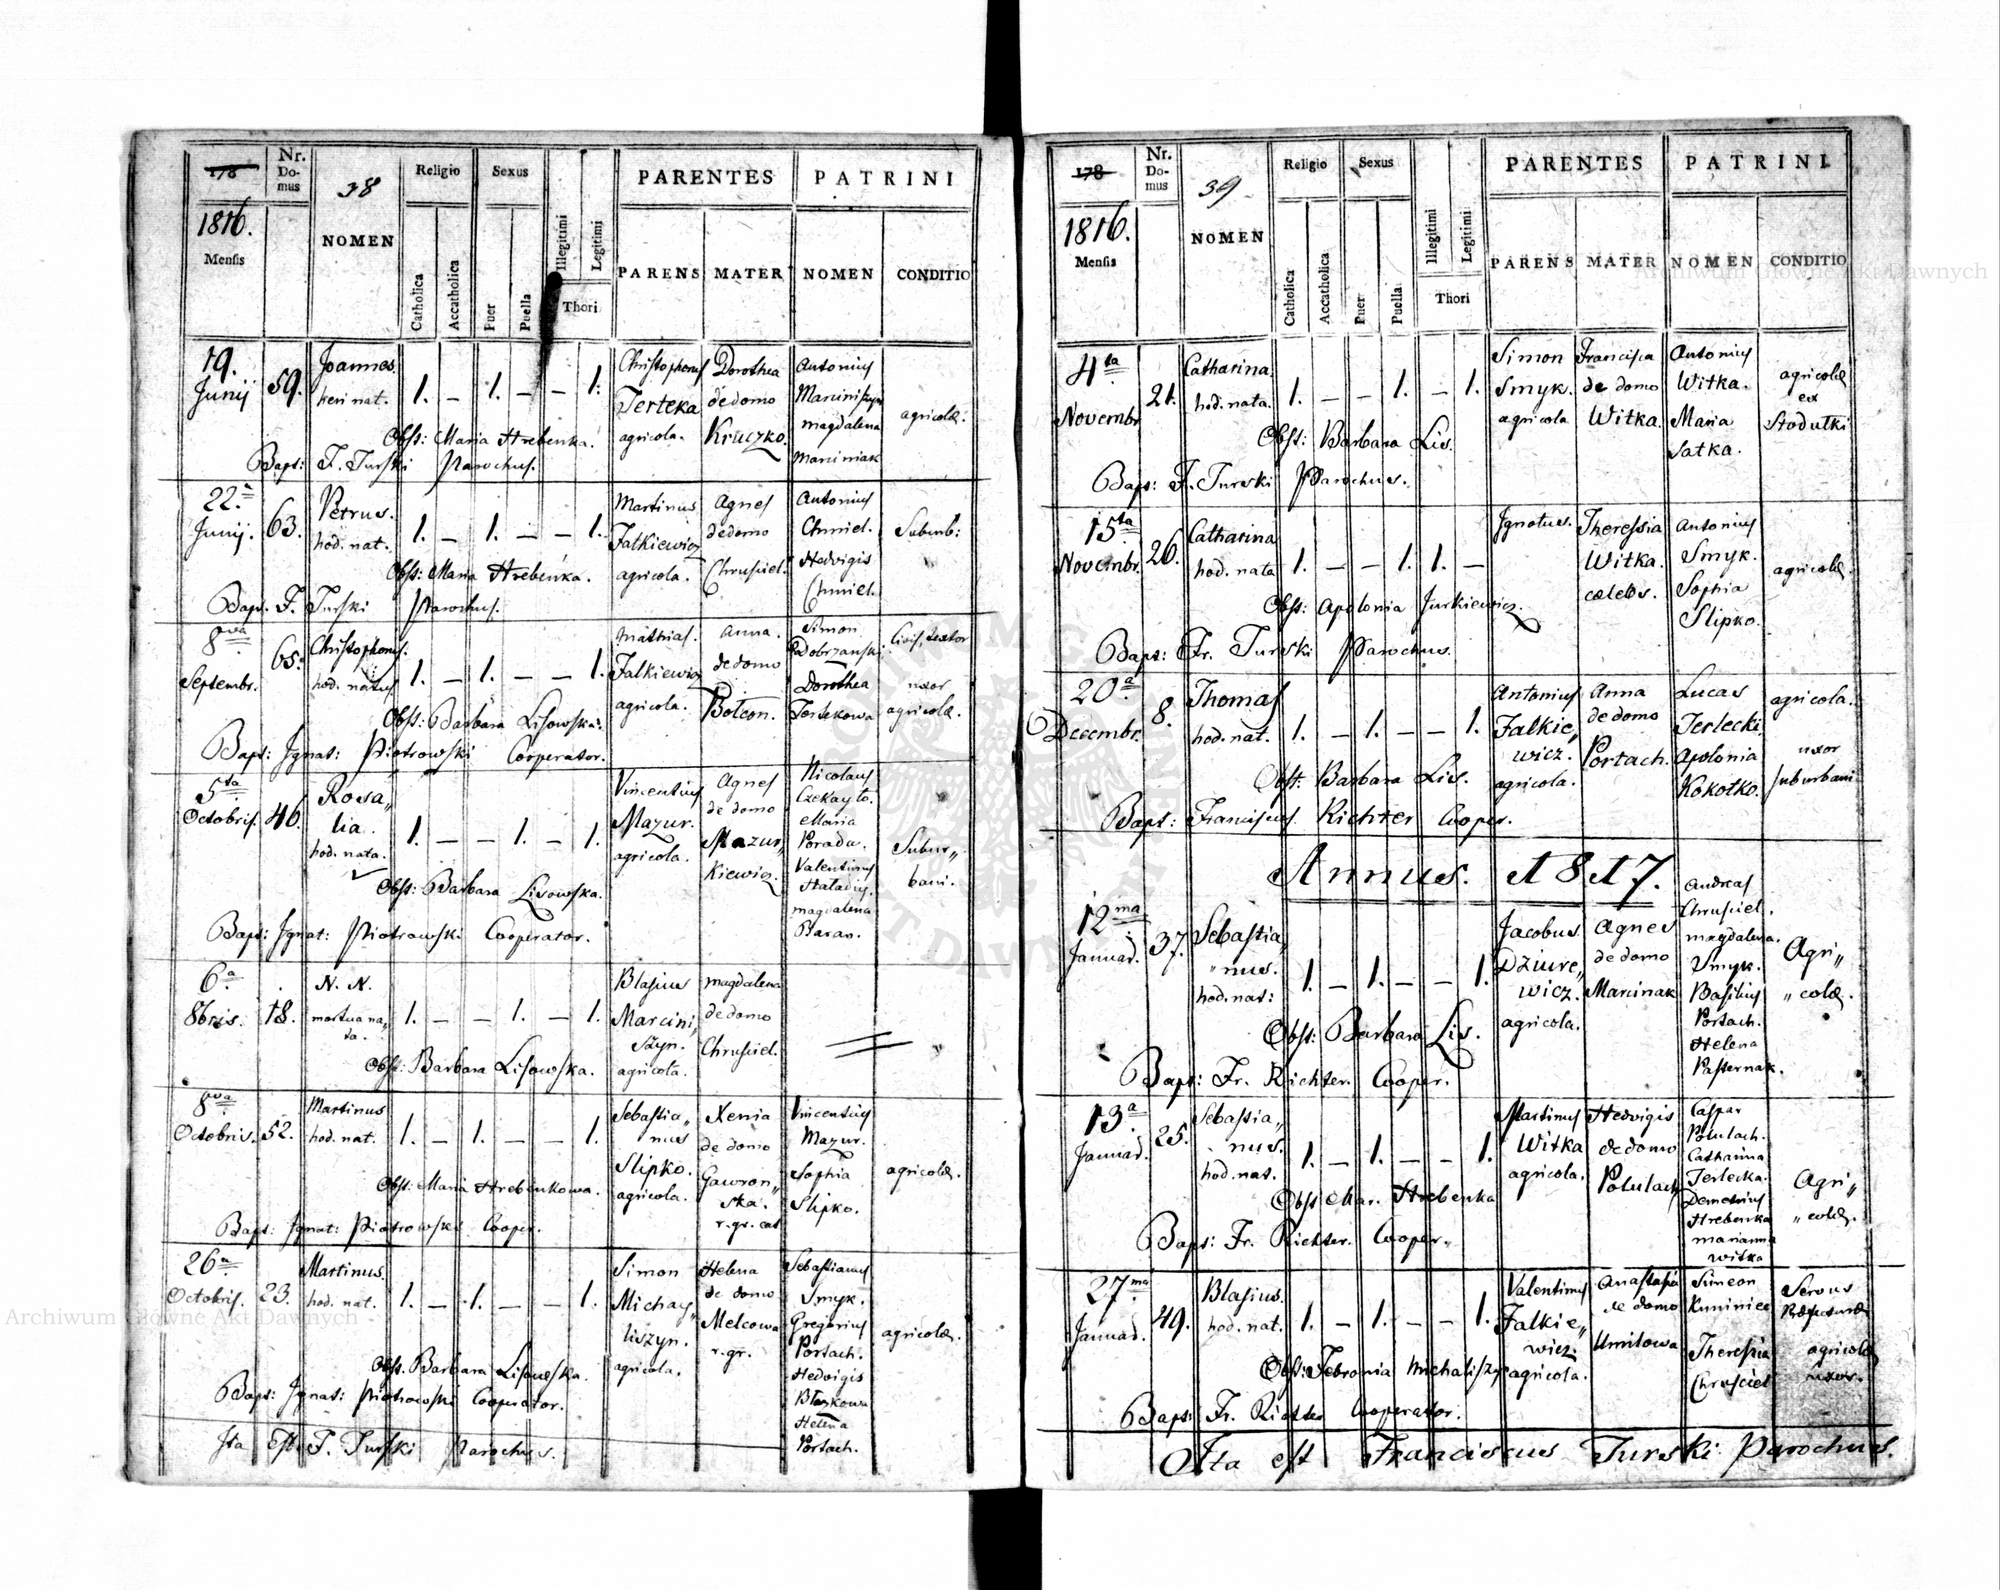 178
Nr. Domus
38
Religio
Sexus
PARENTES
PATRINI
1816.
Mensis
NOMEN
Catholica
Accatholica
Puer
Puella
Illegitimi
Legitimi
Thori
PARENS
MATER
NOMEN
CONDITIO
19. Junij
59.
Joannes
heri nat.
1. — 1. — — 1.
Christophorus
Terteka
agricola.
Dorothea
de domo
Kruczko.
Antonius
Marciniszyn
magdalena
Marciniak
agricolæ.
Obst: Maria Hrebenka.
Bapt: F. Turski Parochus.
22.a Junij.
63.
Petrus.
hod. nat.
1. — 1. — — 1.
Martinus
Falkiewicz
agricola.
Agnes
de domo
Chrusciel.
Antonius
Chmiel.
Hedvigis
Chmiel.
Suburb:
Obst: Maria Hrebenka.
Bapt. F. Turski Parochus.
8va Septembr.
65.
Christophorus.
hod. natus
1. — 1. — — 1.
Mathias.
Falkiewicz
agricola.
Anna.
de domo
Botcon.
Simon
Podobrzanski
Dorothea
Tertekowa
Civis, textor
uxor
agricolæ.
Obst: Barbara Lisowska.
Bapt: Ignat: Piotrowski Cooperator.
5ta Octobris.
46.
Rosa„
lia.
hod. nata.
1. — — 1. — 1.
Vincentius
Mazur.
agricola.
Agnes
de domo
Mazur„
kiewicz.
Nicolaus
Czekayło.
Maria
Porada.
Valentinus
Haladus.
magdalena
Baran.
Subur„
bani.
Obst: Barbara Lisowska.
Bapt: Ignat: Piotrowski Cooperator.
6a 8bris.
18.
N. N.
mortua na„
ta.
1. — — 1. — 1.
Blasius
Marcini„
szyn.
agricola.
magdalena
de domo
Chrusciel.
Obst: Barbara Lisowska.
8va Octobris.
52.
Martinus
hod. nat.
1. — 1. — — 1.
Sebastia„
nus
Slipko.
agricola.
Xenia
de domo
Gawron„
ska.
r. gr. cat
Vincentius
Mazur.
Sophia
Slipko.
agricolæ.
Obst: Maria Hrebenkowa.
Bapt: Ignat: Piotrowski Cooper.
26a Octobris.
23.
Martinus.
hod. nat.
1. — 1. — — 1.
Simon
Michay„
liszyn.
agricola.
Helena
de domo
Melcowa
r. gr.
Sebastianus
Smyk.
Gregorius
Portach.
Hedvigis
Błaskowa
Helena
Portach.
agricolæ.
Obst. Barbara Lisowska.
Bapt: Ignat: Piotrowski Cooperator.
Ita Est F. Turski Parochus.
178
Nr. Domus
39
Religio
Sexus
PARENTES
PATRINI
1816.
Mensis
NOMEN
Catholica
Accatholica
Puer
Puella
Illegitimi
Legitimi
Thori
PARENS
MATER
NOMEN
CONDITIO
4ta Novembr.
21.
Catharina.
hod. nata.
1. — — 1. — 1.
Simon
Smyk.
agricola
Francisca
de domo
Witka.
Antonius
Witka.
Maria
Satka.
agricolæ
ex
Stodułki
Obst: Barbara Lis.
Bapt: F. Turski Parochus.
15ta Novembr.
26.
Catharina
hod. nata
1. — — 1. 1. —
Ignotus.
Theressia
Witka.
cælebs.
Antonius
Smyk.
Sophia
Slipko.
agricolæ.
Obst: Apolonia Jurkiewicz.
Bapt: Fr. Turski Parochus.
20a Decembr.
8.
Thomas
hod. nat.
1. — 1. — — 1.
Antonius
Falkie„
wicz.
agricola.
Anna
de domo
Portach.
Lucas
Terlecki
Apolonia
Kokotko.
agricola.
uxor
suburbani
Obst: Barbara Lis.
Bapt: Franciscus Richter Cooper.
Annus. 1817.
12ma Januar.
37.
Sebastia„
„nus.
hod. nat:
1. — 1. — — 1.
Jacobus
Dziure„
wicz.
agricola.
Agnes
de domo
Marcinak
Andreas
Chrusciel.
magdalena.
Smyk.
Basilius
Portach.
Helena
Pasternak.
Agri„
„colæ.
Obst: Barbara Lis.
Bapt: Fr. Richter. Cooper.
13a Januar.
25.
Sebastia„
nus.
hod. nat.
1. — 1. — — 1.
Martinus
Witka
agricola.
Hedvigis
de domo
Potulach
Caspar
Potulach.
Catharina
Terlecka.
Demetrius
Hrebenka
marianna
witka
Agri„
„colæ.
Obst Mar. Hrebenka
Bapt: Fr. Richter. Cooper.
27ma Januar.
49.
Blasius.
hod. nat.
1. — 1. — — 1.
Valentinus
Falkie„
wicz.
agricola.
Anastasia
de domo
Umitowa
Simeon
Kuniniec
Theresia
Chrusciel
Servus
agricolæ
uxor.
Obst: Febronia Michaliszyn
Bapt: Fr. Richter Cooperator.
Ita est Franciscus Turski Parochus.
Archiwum Główne Akt Dawnych
Archiwum Główne Akt Dawnych